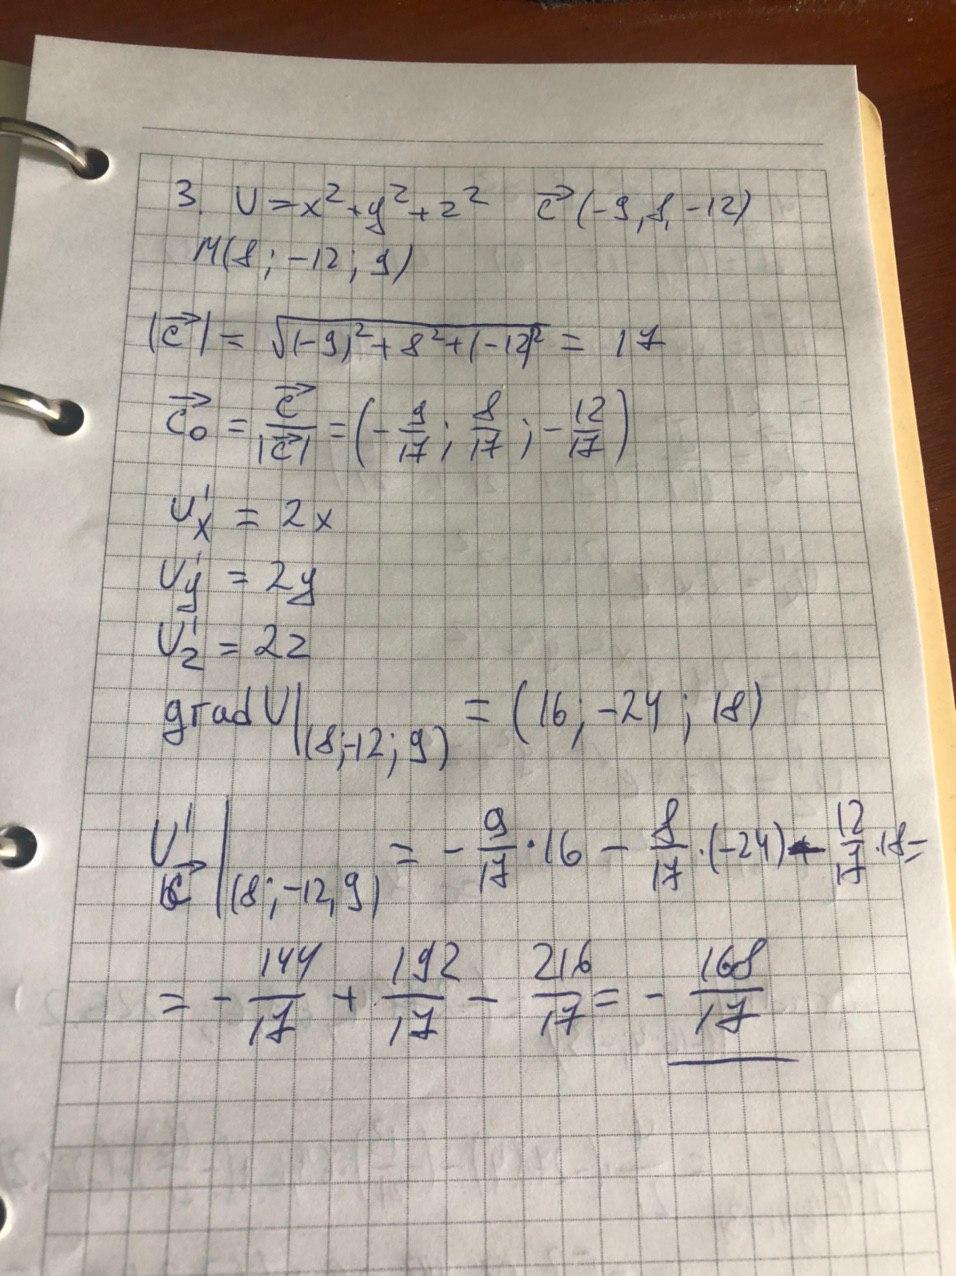 3. U=x²+y²+z² c⃗(-9,8,-12)
M(8;-12;9)
|c⃗| = √((-9)²+8²+(-12)²) = 17
c⃗₀ = c⃗/|c⃗| = (-9/17; 8/17; -12/17)
U'x = 2x
U'y = 2y
U'z = 2z
grad U|(8;-12;9) = (16;-24;18)
U'c⃗|(8;-12,9) = -9/17·16 - 8/17·(-24) - 12/17·18=
= -144/17 + 192/17 - 216/17 = -168/17